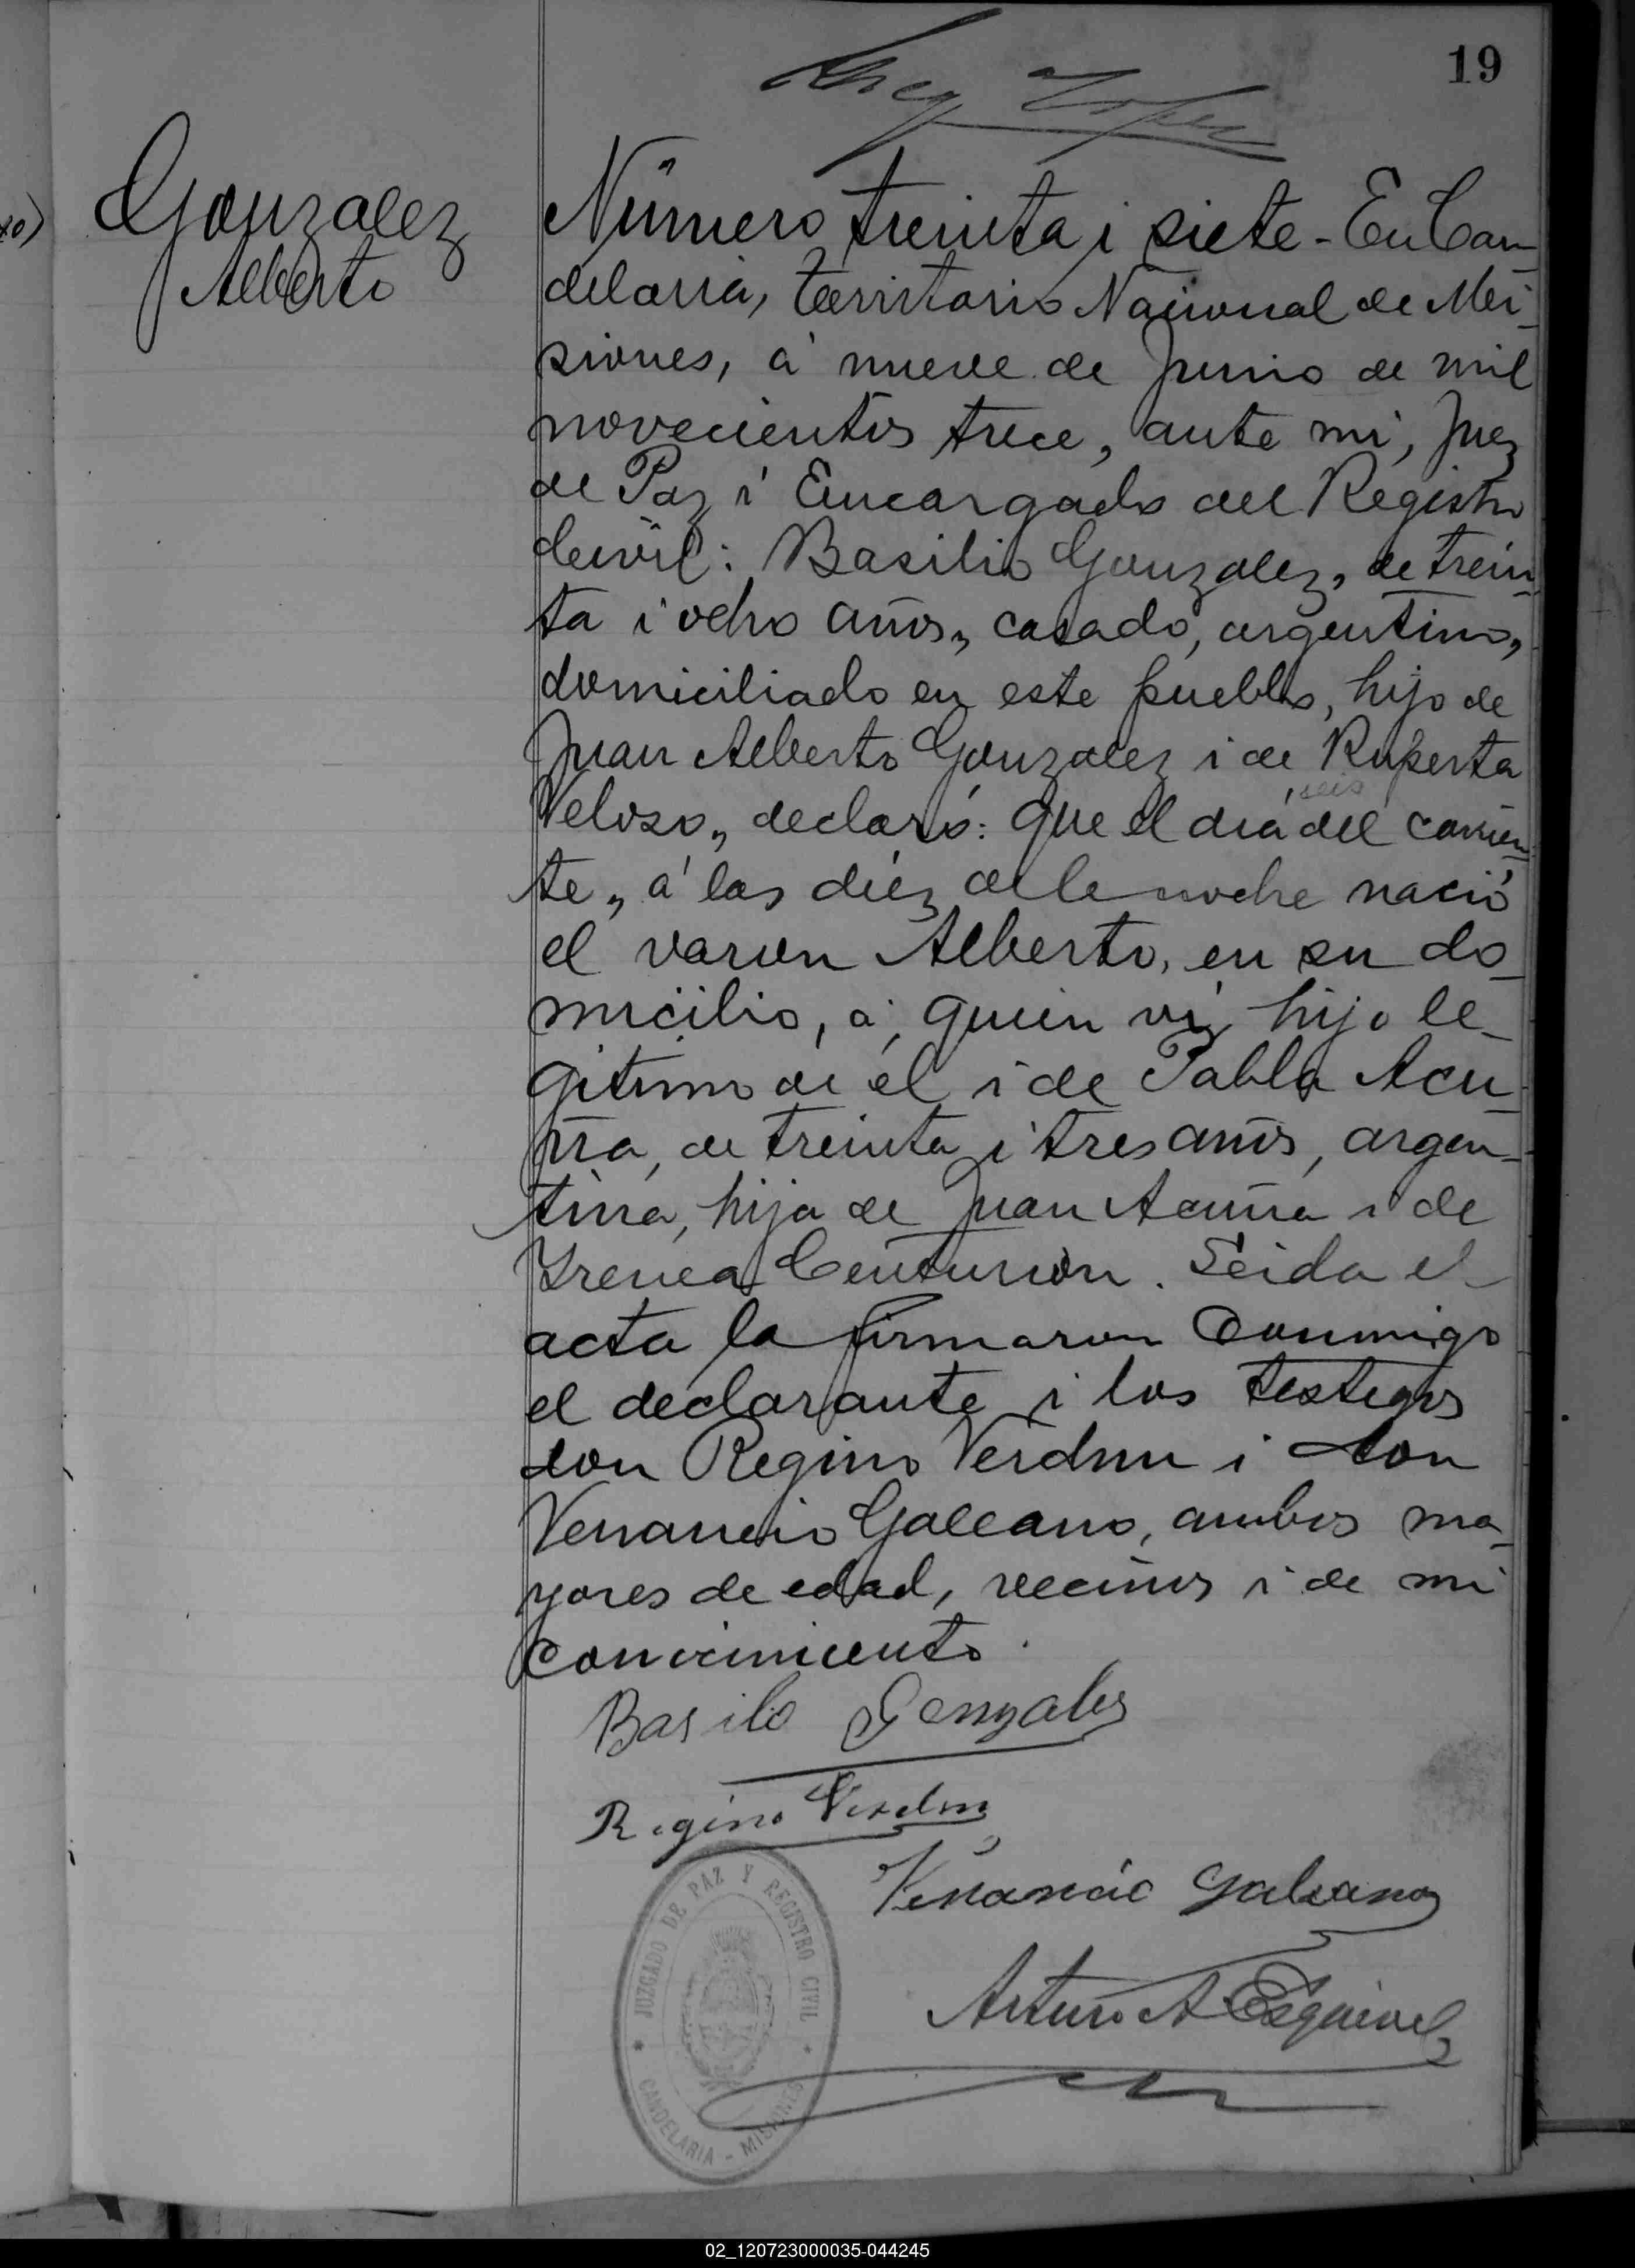 19
Gonzalez
Alberto
Número treinta i siete - En Can-
delaria, Territorio Nacional de Mi-
siones, á nueve de Junio de mil
novecientos trece, ante mi, Juez
de Paz i Encargado del Registro
Civil: Basilio Gonzalez, de trein-
ta i ocho años, casado, argentino,
domiciliado en este pueblo, hijo de
Juan Alberto Gonzalez i de Ruperta
seis
Velozo, declaró: que el dia del corrien-
te, á las diez de la noche nació
el varon Alberto, en su do-
micilio, á quien vi, hijo le-
gitimo de él i de Pabla Acu-
ña, de treinta i tres años, argen-
tina, hija de Juan Acuña i de
Yrenea Centurion. Leida el
acta la firmaron conmigo
el declarante i los testigos
don Regino Verdun i don
Venancio Galeano, ambos ma-
yores de edad, vecinos i de mi
conocimiento.
Basilo Gonzales
Regino Verdun
Venancio Galeano
Arturo A Esquivel
JUZGADO DE PAZ Y REGISTRO CIVIL
CANDELARIA - MISIONES
02_120723000035-044245